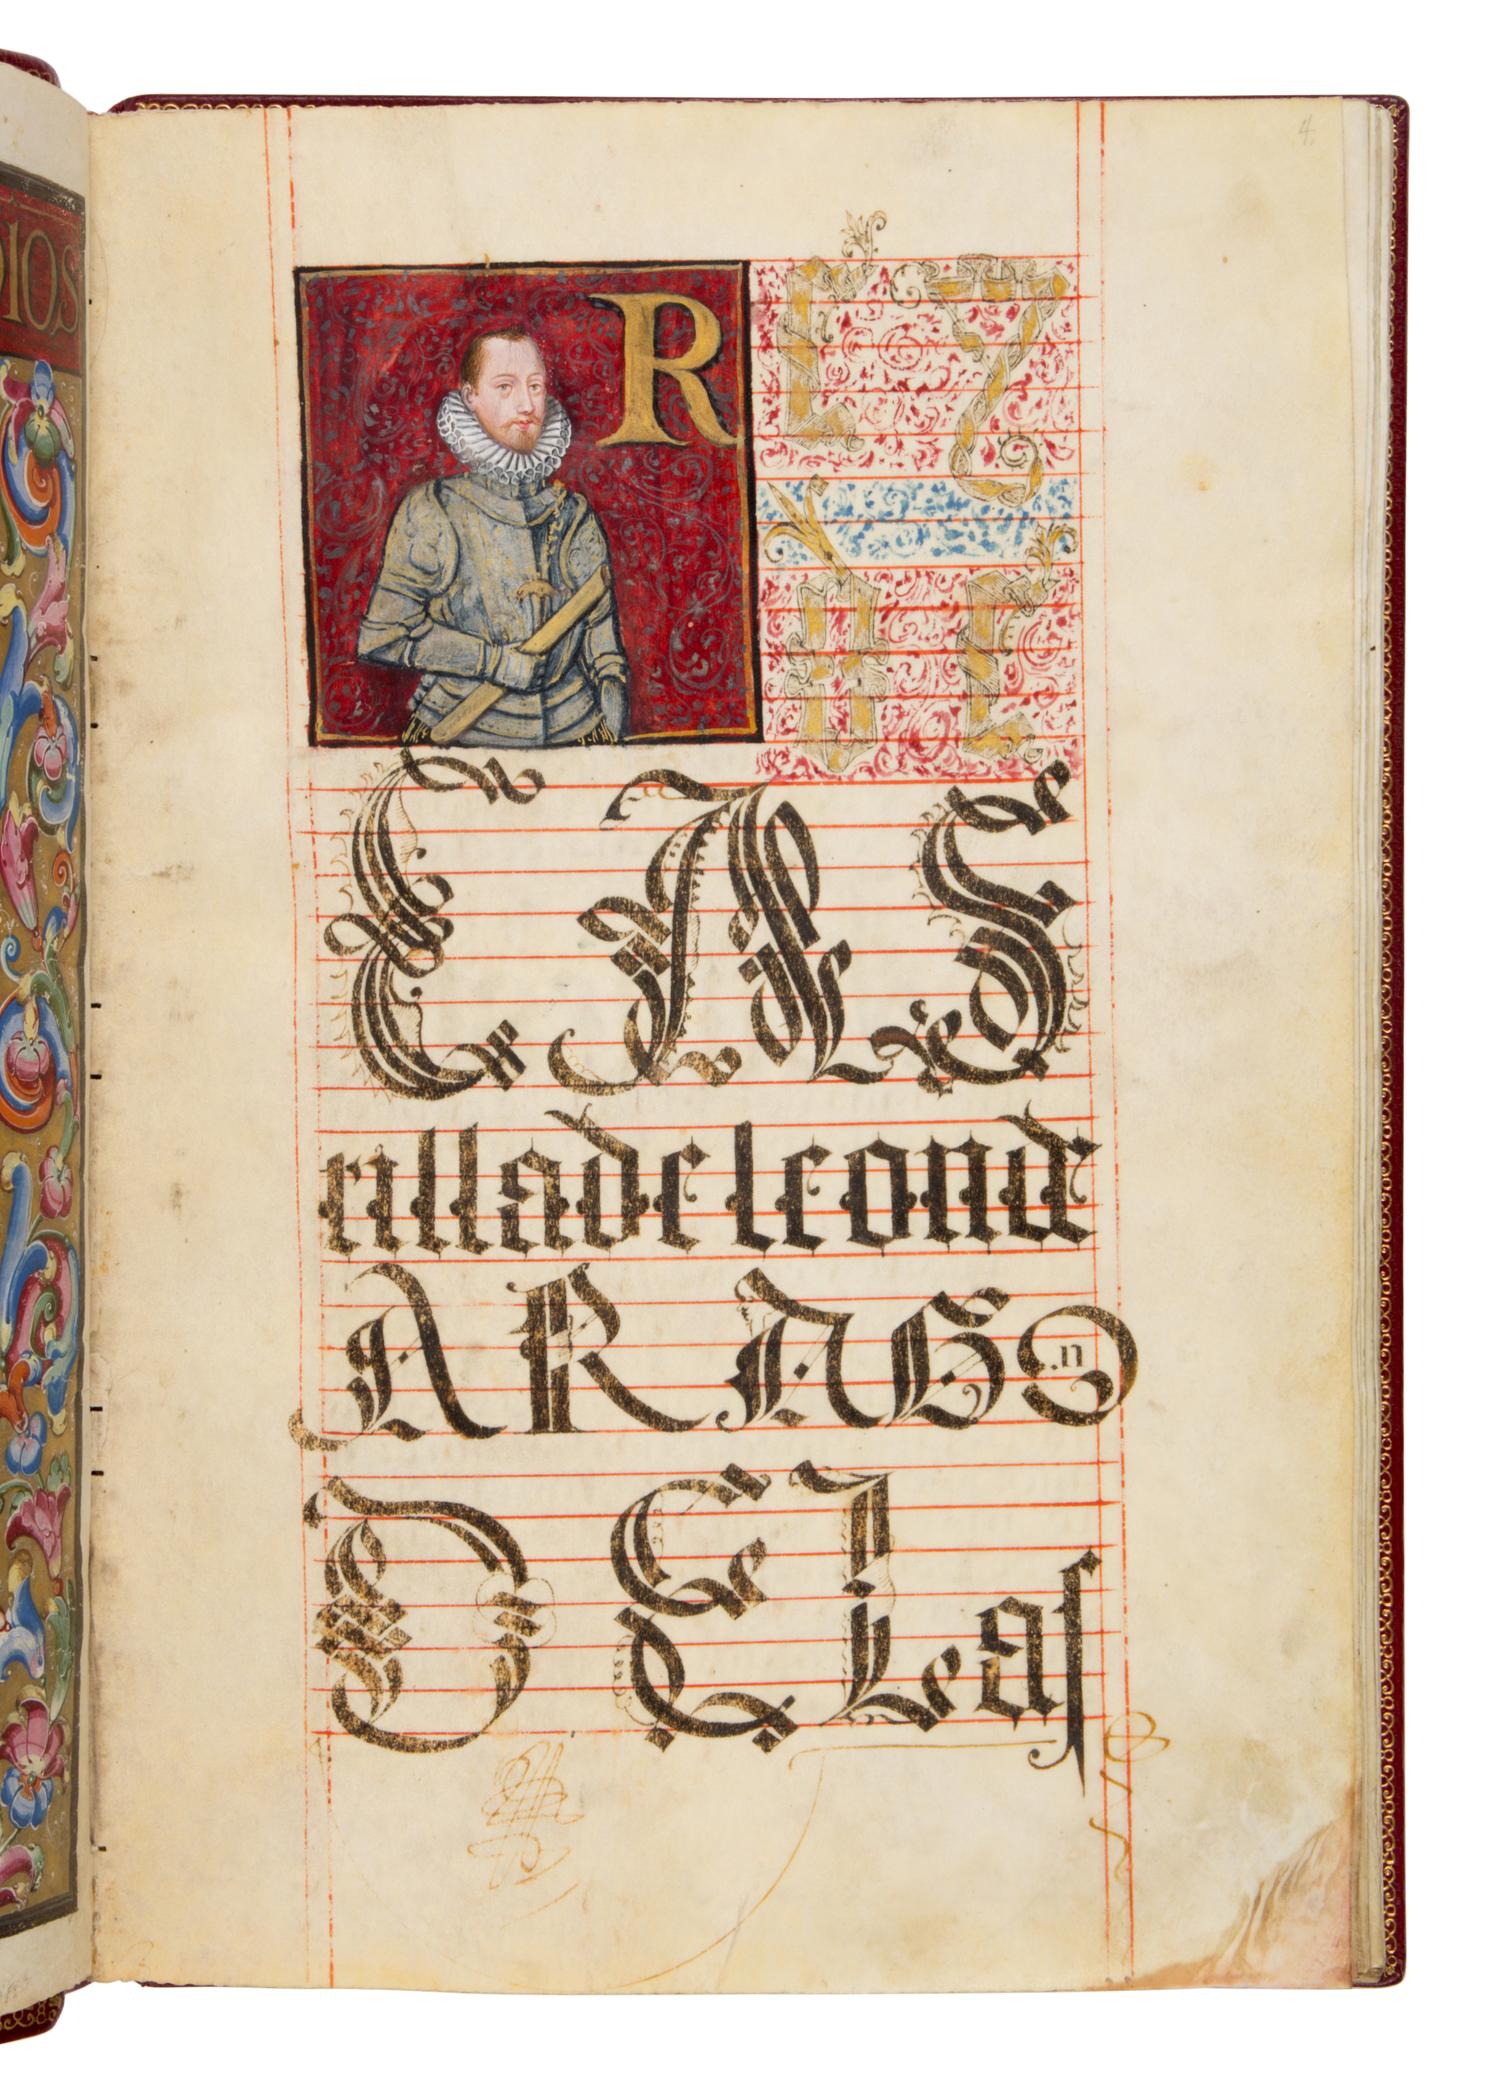 DIOS
4
R EY
DE
CAS
tilla de leon de
ARAGO.n
DE Las